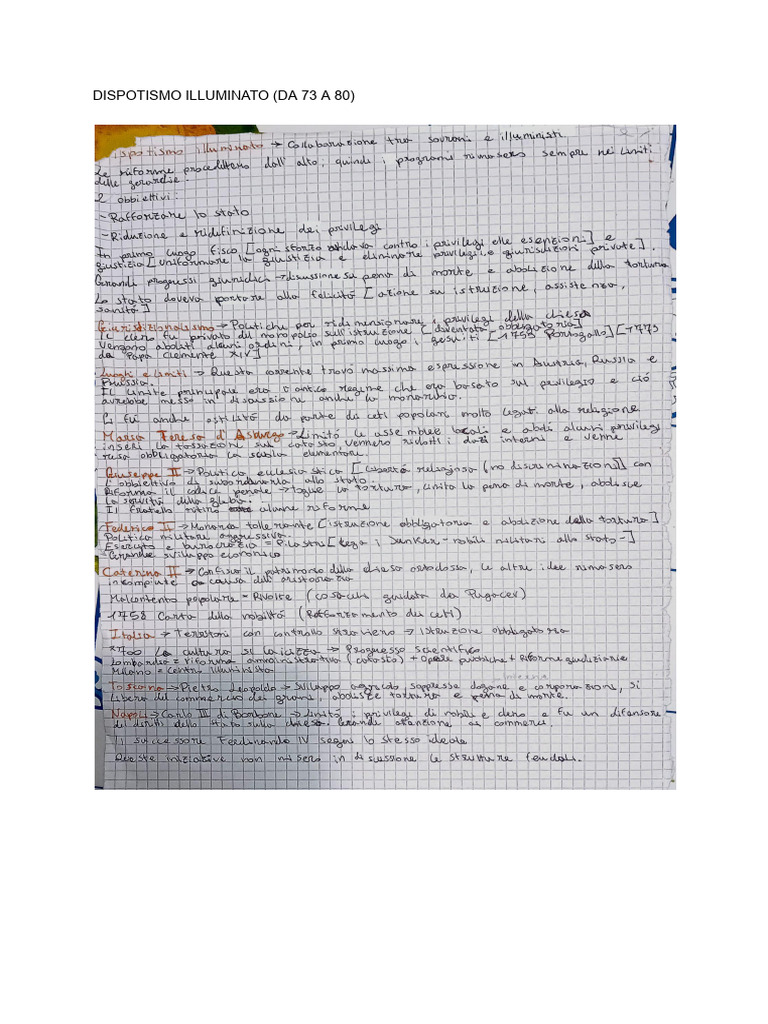 DISPOTISMO ILLUMINATO (DA 73 A 80)
ispotismo illuminato → Collaborazione tra sovrani e illuministi.
Le riforme procedettero dall'alto, quindi i programmi rimasero sempre nei limiti
delle gerarchie.
2 obbiettivi:
- Rafforzare lo stato
- Riduzione e ridefinizione dei privilegi
In primo luogo fisco [ogni sforzo andava contro i privilegi e le esenzioni] e
giustizia [uniformare la giustizia e eliminare privilegi e giurisdizioni private].
Grandi progressi giuridici → discussione su pena di morte e abolizione della tortura
Lo stato doveva portare alla felicità [azione su istruzione, assistenza,
sanità]
Giurisdizionalismo → Politiche per ridimensionare i privilegi della chiesa
Il clero fu privato del monopolio sull'istruzione [diventata obbligatoria]
Vengono aboliti alcuni ordini, in primo luogo i gesuiti [1759 Portogallo] [1773
da Papa Clemente XIV]
Luoghi e limiti → Questa corrente trovò massima espressione in Austria, Russia e
Prussia.
Il limite principale era l'antico regime che era basato sul privilegio e ciò
avrebbe messo in discussione anche la monarchia.
Ci fu anche ostilità da parte di ceti popolari molto legati alla religione
Maria Teresa d'Asburgo → Limitò le assemblee locali e abolì alcuni privilegi
inserì la tassazione sul catasto, vennero ridotti i dazi interni e venne
resa obbligatoria la scuola elementare.
Giuseppe II → Politica ecclesiastica [libertà religiosa (no discriminazioni)] con
l'obbiettivo di subordinarla allo stato.
Riforma il codice penale → toglie la tortura, limita la pena di morte, abolisce
la servitù della gleba.
Il fratello ritirò alcune riforme
Federico II → Monarca tollerante [istruzione obbligatoria e abolizione della tortura]
Politica militare aggressiva.
Esercito e burocrazia = Pilastri [lega i Junker - nobili militari allo stato -]
Grande sviluppo economico
Caterina II → Confiscò il patrimonio della chiesa ortodossa, le altre idee rimasero
incompiute a causa dell'aristocrazia
Malcontento popolare = Rivolte (cosacchi guidata da Pugacev)
1758 Carta della nobiltà (Rafforzamento dei ceti)
Italia → Territori con controllo straniero → Istruzione obbligatoria
*700 La cultura si laicizza → Progresso scientifico
Lombardia = riforma amministrativa (catasto) + Opere pubbliche + Riforme giudiziarie
Milano = Centro illuminista
Toscana → Pietro Leopoldo → Sviluppo agricolo, soppresse dogane interne e corporazioni, si
libera del commercio dei grani, abolisce tortura e pena di morte.
Napoli → Carlo III di Borbone → Limitò i privilegi di nobili e clero e fu un difensore
dei diritti dello stato sulla chiesa. Grande attenzione ai commerci.
Il successore Ferdinando IV seguì lo stesso ideale
Queste iniziative non misero in discussione le strutture feudali.